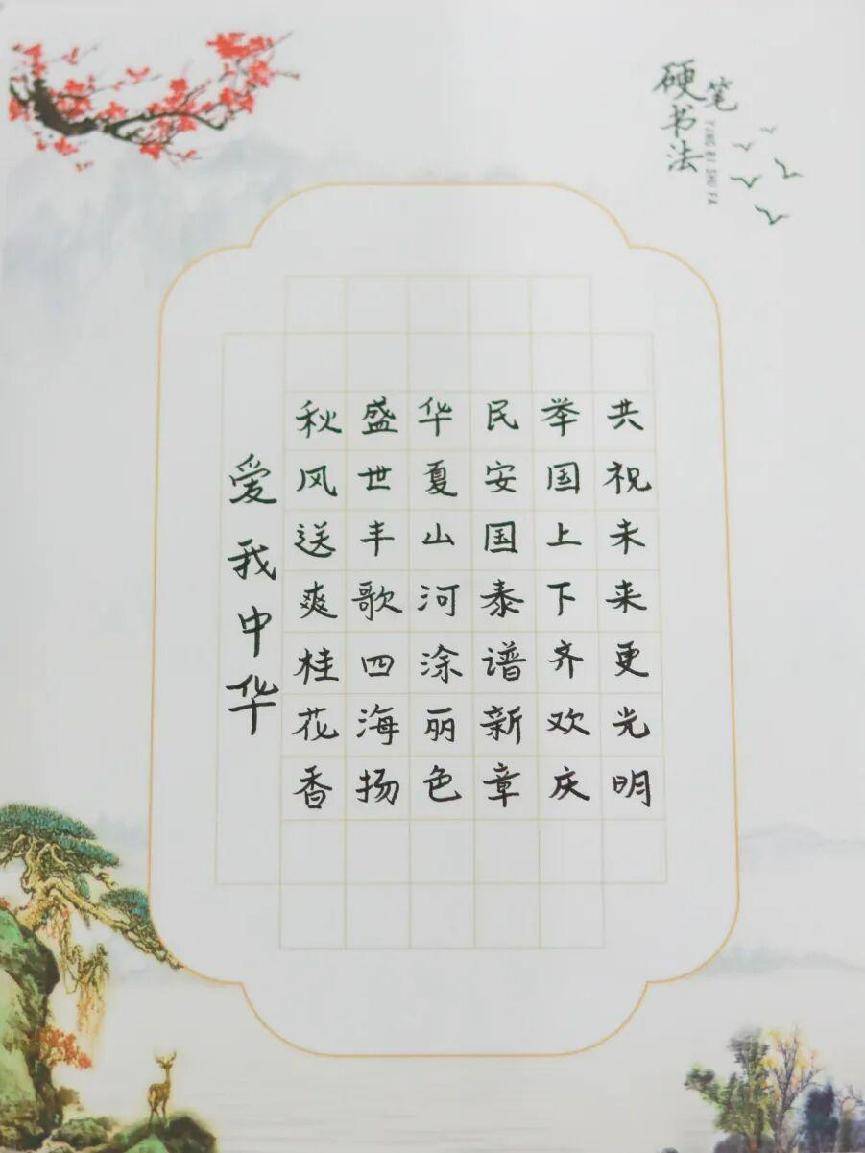 硬笔书法
YING BI SHU FA
爱我中华
秋风送爽桂花香
盛世丰歌四海扬
华夏山河涂丽色
民安国泰谱新章
举国上下齐欢庆
共祝未来更光明